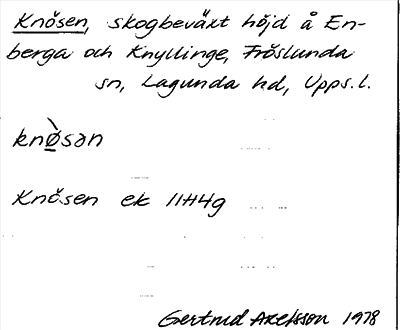 Knösen, skogbeväxt höjd å En-
berga och Knyllinge, Fröslunda
sn, Lagunda hd, Upps.l.
knø̀sən
Knösen ek 11H4g
Gertrud Axelsson 1978